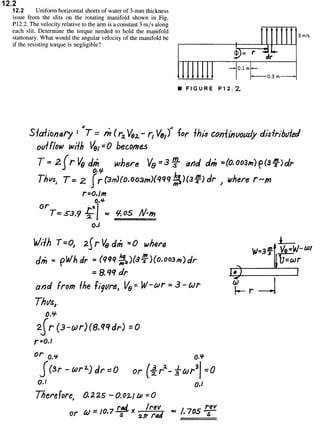 12.2
12.2 Uniform horizontal sheets of water of 3-mm thickness
issue from the slits on the rotating manifold shown in Fig.
P12.2. The velocity relative to the arm is a constant 3 m/s along
each slit. Determine the torque needed to hold the manifold
stationary. What would the angular velocity of the manifold be
if the resisting torque is negligible?
3 m/s
r
dr
0.1 m
0.3 m
■ FIGURE P12.2
Stationary: "T = ṁ (r₂V_θ2 - r₁V_θ1)" for this continuously distributed
outflow with V_θ1=0 becomes
T = 2∫r V_θ dṁ where V_θ = 3 m/s and dṁ =(0.003m)ρ(3 m/s)dr
Thus, T = 2 ∫_{r=0.1m}^{0.4} r (3m)(0.003m)(999 kg/m³)(3 m/s) dr , where r~m
or T = 53.9 r²/2 |_{0.1}^{0.4} = 4.05 N·m
With T=0, 2∫r V_θ dṁ = 0 where
dṁ = ρWh dr = (999 kg/m³)(3 m/s)(0.003m)dr
= 8.99 dr
and from the figure, V_θ = W-ωr = 3-ωr
W=3 m/s
V_θ=W-ωr
U=ωr
ω
r
Thus,
2∫_{r=0.1}^{0.4} r (3-ωr)(8.99 dr) = 0
or ∫_{0.1}^{0.4} (3r - ωr²) dr = 0 or (3/2 r² - 1/3 ωr³)|_{0.1}^{0.4} = 0
Therefore, 0.225 - 0.021 ω = 0
or ω = 10.7 rad/s x 1rev/2π rad = 1.705 rev/s